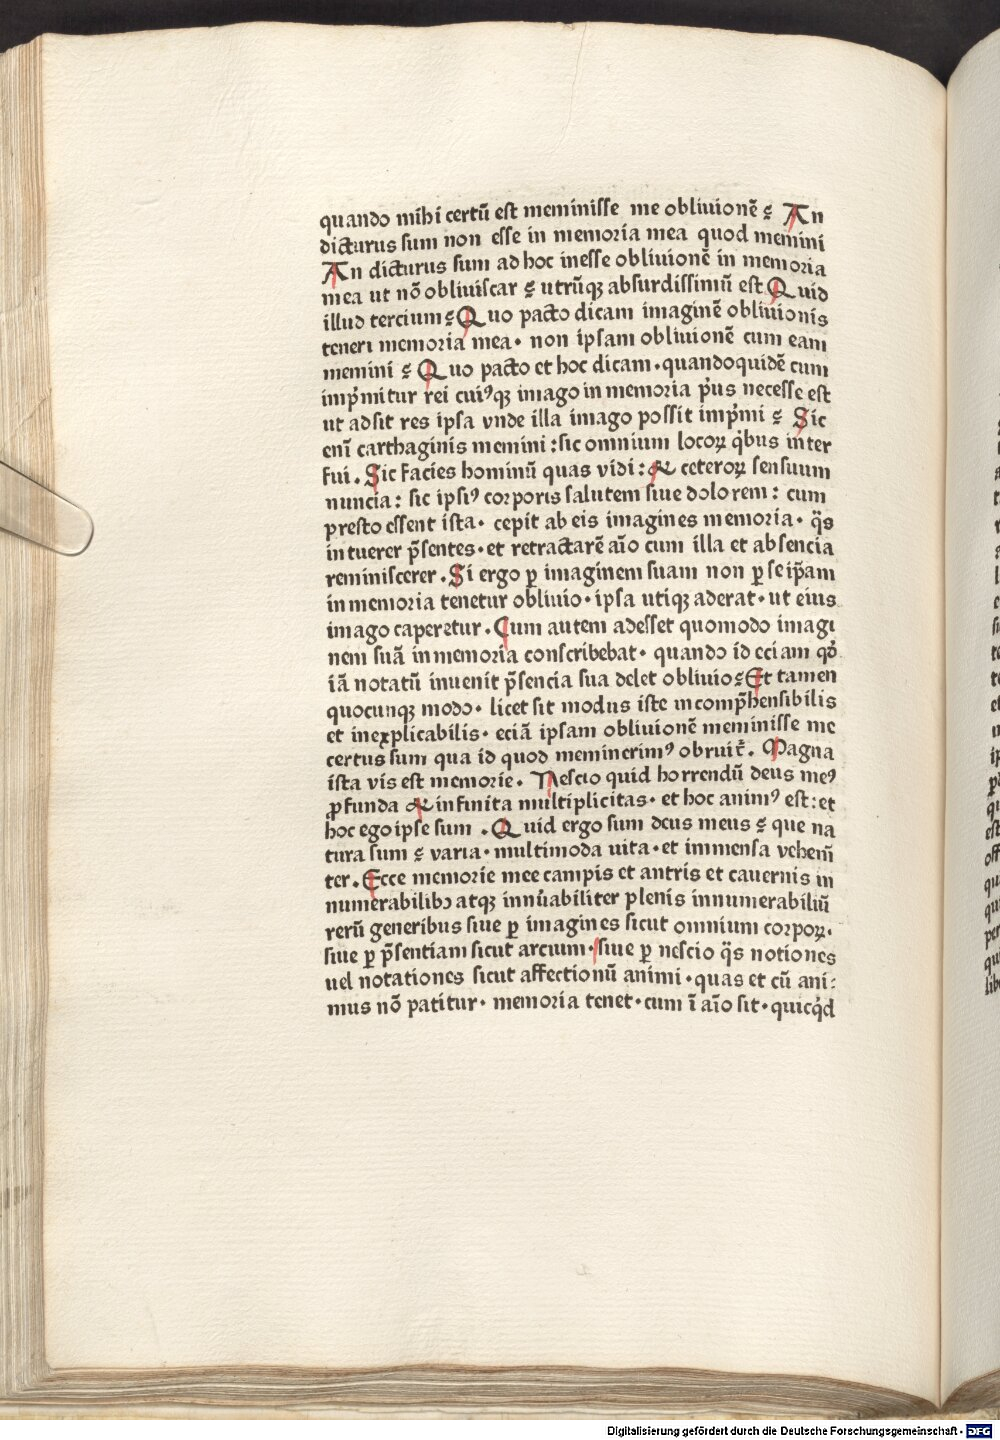 quando mihi certū est meminisse me obliuionē ꝫ An
dicturus sum non esse in memoria mea quod memini
An dicturus sum ad hoc inesse obliuionē in memoria
mea ut nō obliuiscar ꝫ utrūqꝫ absurdissimū est Quid
illud tercium ꝫ Quo pacto dicam imaginē obliuionis
teneri memoria mea· non ipsam obliuionē cum eam
memini ꝫ Quo pacto et hoc dicam·quandoquidē cum
imp̓mitur rei cuiꝰqꝫ imago in memoria p̓us necesse est
ut adsit res ipsa vnde illa imago possit imp̓mi ꝫ Sic
eni̅ carthaginis memini:sic omnium locoꝝ q̓bus inter
fui. Sic facies hominū quas vidi: & ceteroꝝ sensuum
nuncia: sic ipsiꝰ corporis salutem siue dolorem: cum
presto essent ista· cepit ab eis imagines memoria· q̈s
intuerer p̄sentes·et retractarē aīo cum illa et absencia
reminiscerer.Si ergo ꝑ imaginem suam non ꝑ seip̄am
in memoria tenetur obliuio·ipsa utiqꝫ aderat·ut eius
imago caperetur.Cum autem adesset quomodo imagi
nem suā in memoria conscribebat· quando id eciam qd̓
iā notatū inuenit p̄sencia sua delet obliuio ꝫ Et tamen
quocunqꝫ modo· licet sit modus iste incomp̄hensibilis
et inexplicabilis· eciā ipsam obliuionē meminisse me
certus sum qua id quod meminerimꝰ obruit̄. Magna
ista vis est memorie. Nescio quid horrendū deus meꝰ
ꝓfunda & infinita multiplicitas· et hoc animꝰ est:et
hoc ego ipse sum .Quid ergo sum deus meus ꝫ que na
tura sum ꝫ varia·multimoda uita·et immensa vehem̄
ter.Ecce memorie mee campis et antris et cauernis in
numerabilibꝰ atqꝫ innu̓abiliter plenis innumerabiliū
rerū generibus siue ꝑ imagines sicut omnium corpoꝝ·
siue ꝑ p̄sentiam sicut arcium·siue ꝑ nescio q̈s notiones
uel notationes sicut affectionū animi·quas et cū ani:
mus nō patitur· memoria tenet·cum ī aīo sit·quicq̓d
Digitalisierung gefördert durch die Deutsche Forschungsgemeinschaft - DFG